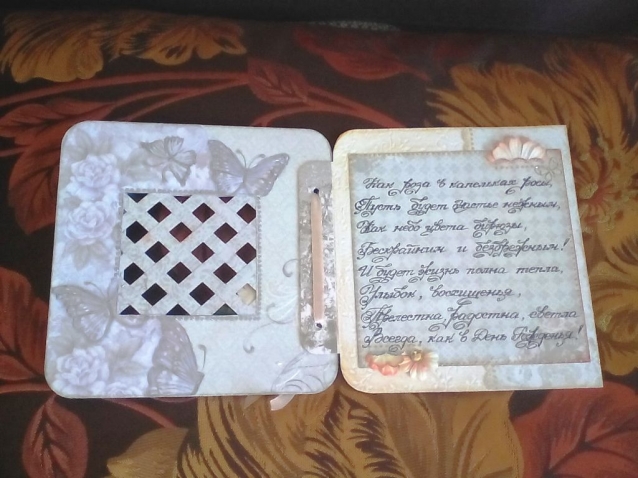 Как роза в капельках росы,
Пусть будет счастье нежным,
Как небо цвета бирюзы,
Бескрайним и безбрежным!
И будет жизнь полна тепла,
Улыбок, восхищенья,
Прелестна, радостна, светла
Всегда, как в День Рожденья!